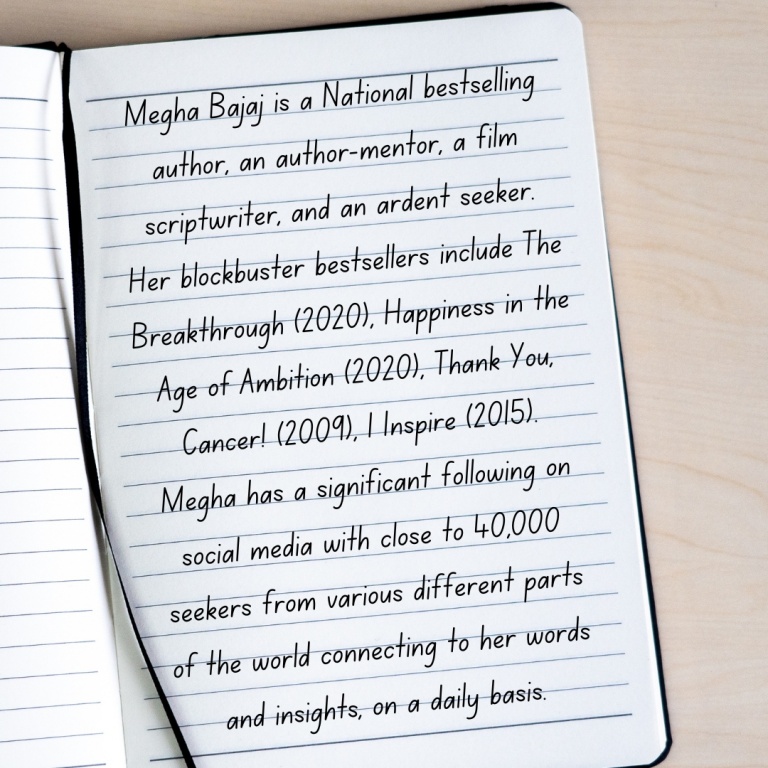 Megha Bajaj is a National bestselling
author, an author-mentor, a film
scriptwriter, and an ardent seeker.
Her blockbuster bestsellers include The
Breakthrough (2020), Happiness in the
Age of Ambition (2020), Thank You,
Cancer! (2009), I Inspire (2015).
Megha has a significant following on
social media with close to 40,000
seekers from various different parts
of the world connecting to her words
and insights, on a daily basis.